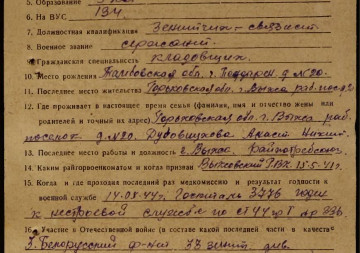 5. Образование
6. На ВУС 134
7. Должностная квалификация Зенитчик-связист
8. Военное звание сержант
9. Гражданская специальность кладовщик
10. Место рождения Тамбовская обл. г. д. №20.
11. Последнее место жительства Горьковская обл. г. Выкса раб. пос.
12. Где проживает в настоящее время семья (фамилия, имя и отчество жены или
родителей и точный их адрес) Горьковская обл. г. Выкса раб.
поселок д. №20.
13. Последнее место работы и должность г. Выкса.
14. Каким райгорвоенкоматом и когда призван Выксовский РВК 15.5.41 г.
15. Когда и где проходил последний раз медкомиссию и результат годности к
военной службе 14.05.44 г. Госпиталь 3776 годен
к нестроевой службе по ст 44 гр I пр 336.
16. Участие в Отечественной войне (в составе какой последней части и в качестве
3. Белорусский фронт 33 зенит. див.